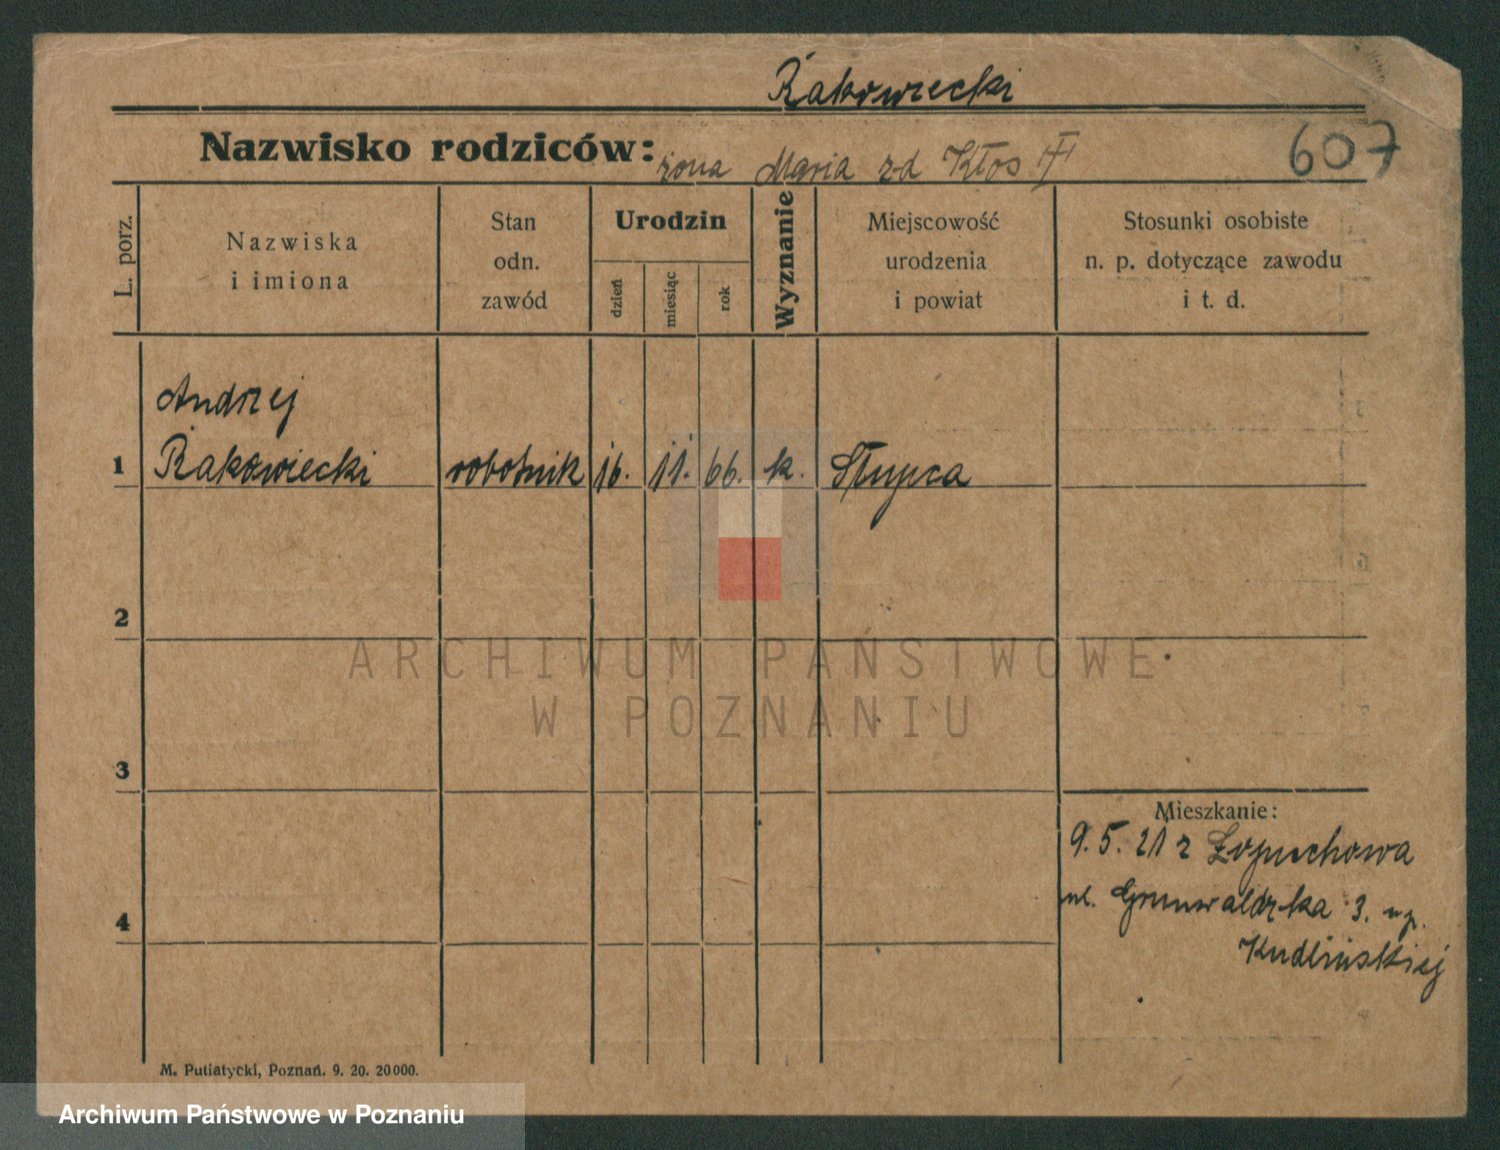 Rakowiecki
Nazwisko rodziców: żona Maria zd Kłos
607
L. porz.
Nazwiska
i imiona
Stan
odn.
zawód
Urodzin
dzień
miesiąc
rok
Wyznanie
Miejscowość
urodzenia
i powiat
Stosunki osobiste
n. p. dotyczące zawodu
i t. d.
Andrzej
1 Rakowiecki robotnik 16. 11. 66. k. Słupca
2
3
4
ARCHIWUM PAŃSTWOWE
W POZNANIU
Mieszkanie:
9. 5. 21 z Łopuchowa
ul. Grunwaldzka 3. up.
Kudlińskiej
M. Putiatycki, Poznań. 9. 20. 20000.
Archiwum Państwowe w Poznaniu